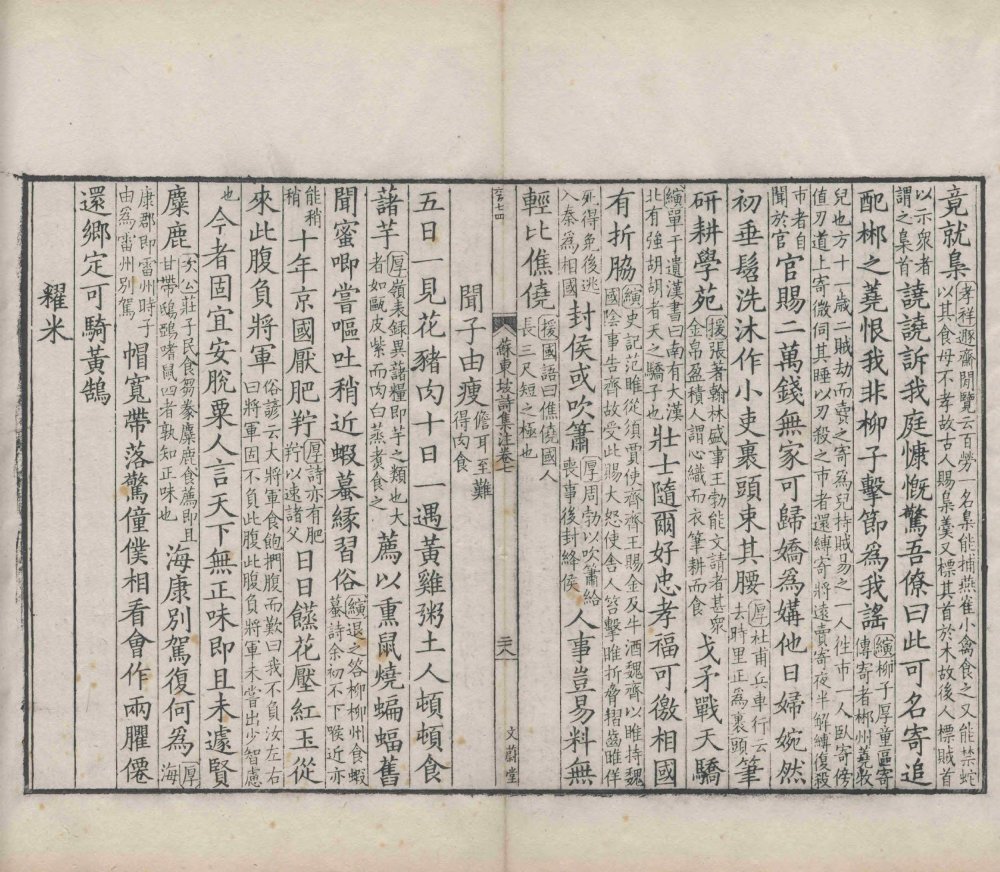 竟就梟孝祥遯齋閒覽云百勞一名梟能捕燕雀小禽食之又能禁蛇以其食母不孝故古人賜梟羹又標其首於木故後人標賊首
以示衆者謂之梟首譊譊訴我庭慷慨驚吾僚曰此可名寄追
配郴之蕘恨我非柳子擊節為我謠縯柳子厚童區寄傳寄者郴州蕘牧
兒也方十一歲二賊劫而賣之寄為兒持賊易之一人往市一人臥寄傍值刃道上寄微伺其睡以刃殺之市者還縛寄將遠賣寄夜半解縛復殺
市者自聞放官官賜二萬錢無家可歸嬌為媾他日婦婉然
初垂髫洗沐作小吏裹頭束其腰厚杜甫兵車行云去時里正為裹頭筆
研耕學苑援張著翰林盛事王勃能文請者甚衆金帛盈積人謂心織而衣筆耕而食戈矛戰天驕
縯單于遺漢書曰南有大漢北有強胡胡者天之驕子也壯士隨爾好忠孝福可徼相國
有折脇縯史記范睢從須賈使齊齊王賜金及牛酒魏齊以睢持魏國陰事告齊故受此賜大怒使舍人笞擊睢折脅摺齒睢佯
死得免後逃入秦為相國封侯或吹簫厚周勃以吹簫給喪事後封絳侯人事豈易料無
輕比僬僥援國語曰僬僥國人長三尺短之極也
蘇東坡詩集注卷七 二十八 文蔚堂
聞子由瘦儋耳至難得肉食
五日一見花豬肉十日一遇黃雞粥土人頓頓食
諸芋厚嶺表錄異藷糧即芋之類也大者如甌皮紫而肉白蒸煑食之薦以熏鼠燒蝙蝠舊
聞蜜唧嘗嘔吐稍近蝦蟇緣習俗縯退之答柳柳州食蝦蟇詩余初不下喉近亦
能稍稍十年京國厭肥羜厚詩亦有肥羜以速諸父日日餻花壓紅玉從
來此腹負將軍俗諺云大將軍食飽捫腹而歎曰我不負汝左右曰將軍固不負此腹此腹負將軍未嘗出少智慮
也今者固宜安脫粟人言天下無正味即且未遽賢
麋鹿次公莊子民食芻豢麋鹿食薦即且甘帶鴟鵶嗜鼠四者孰知正味也海康別駕復何為厚海
康郡即雷州時子由為雷州別駕帽寬帶落驚僮僕相看會作兩臞僊
還鄉定可騎黃鵠
糴米